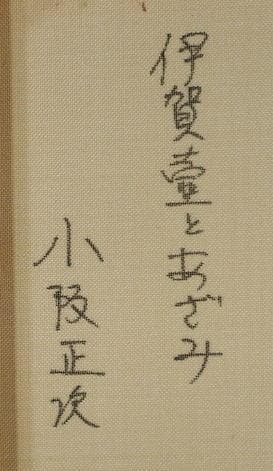 伊賀壺とあざみ
小阪正次